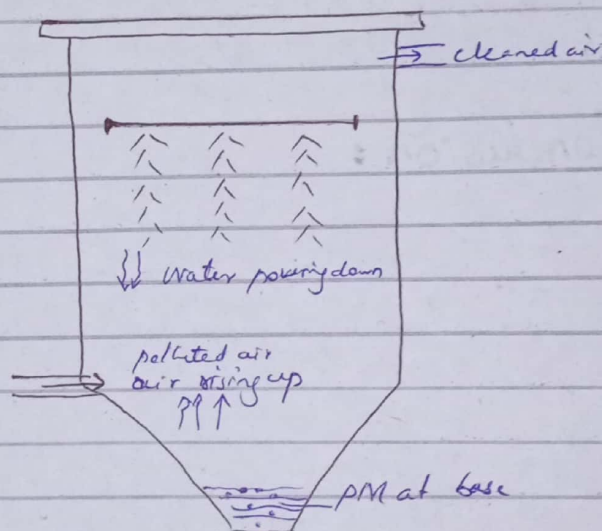 cleaned air
water pouring down
polluted air
air rising up
PM at base